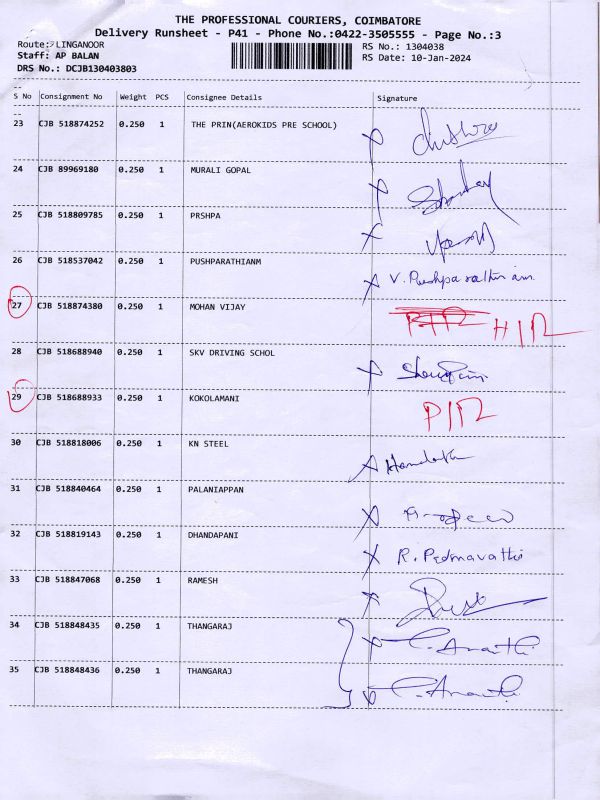 THE PROFESSIONAL COURIERS, COIMBATORE
Delivery Runsheet - P41 - Phone No.:0422-3505555 - Page No.:3
Route: LINGANOOR RS No.: 1304038
Staff: AP BALAN RS Date: 10-Jan-2024
DRS No.: DCJB130403803
S No Consignment No Weight PCS Consignee Details Signature
23 CJB 518874252 0.250 1 THE PRIN(AEROKIDS PRE SCHOOL)
24 CJB 89969180 0.250 1 MURALI GOPAL
25 CJB 518809785 0.250 1 PRSHPA
26 CJB 518537042 0.250 1 PUSHPARATHIANM V. Pushpa rathinam
27 CJB 518874380 0.250 1 MOHAN VIJAY
28 CJB 518688940 0.250 1 SKV DRIVING SCHOL
29 CJB 518688933 0.250 1 KOKOLAMANI
30 CJB 518818006 0.250 1 KN STEEL
31 CJB 518840464 0.250 1 PALANIAPPAN
32 CJB 518819143 0.250 1 DHANDAPANI R. Pedmavathi
33 CJB 518847068 0.250 1 RAMESH
34 CJB 518848435 0.250 1 THANGARAJ C. Ananthi
35 CJB 518848436 0.250 1 THANGARAJ C. Ananthi